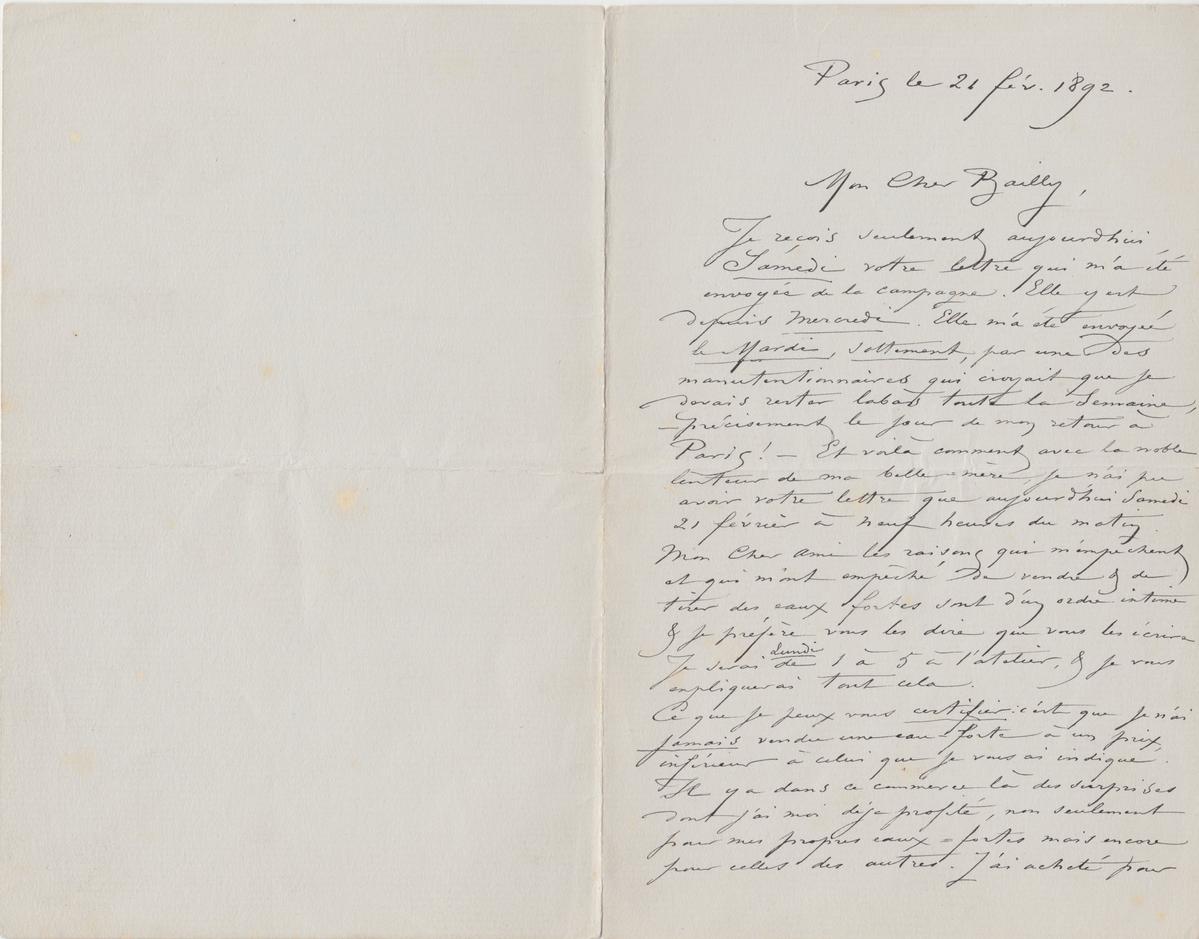 Paris le 21 fév. 1892.
Mon Cher Bailly,
Je reçois seulement aujourd'hui
Samedi votre lettre qui m'a été
envoyés de la campagne. Elle y est
depuis Mercredi. Elle m'a été envoyée
le Mardi, sottement, par une des
manutentionnaires qui croyait que je
devais rester labas toute la semaine,
précisement le jour de mon retour à
Paris! — Et voilà comment avec la noble
lenteur de ma belle-mère, je n'ai pu
avoir votre lettre que aujourd'hui Samedi
21 février à neuf heures du matin
Mon Cher ami les raisons qui m'empêchent
et qui m'ont empêché de vendre & de
tirer des eaux fortes sont d'un ordre intime
& je préfère vous les dire que vous les écrire
Je serai Lundi de 1 à 5 à l'atelier, & je vous
expliquerai tout cela.
Ce que je peux vous certifier: c'est que je n'ai
jamais vendu une eau=forte à un prix
inférieur à celui que je vous ai indiqué.
Il y a dans ce commerce là des surprises
dont j'ai moi déja profité, non seulement
pour mes propres eaux=fortes mais encore
pour celles des autres. J'ai acheté pour